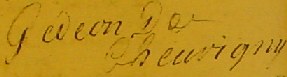 Gedeon De
Cheuvigny